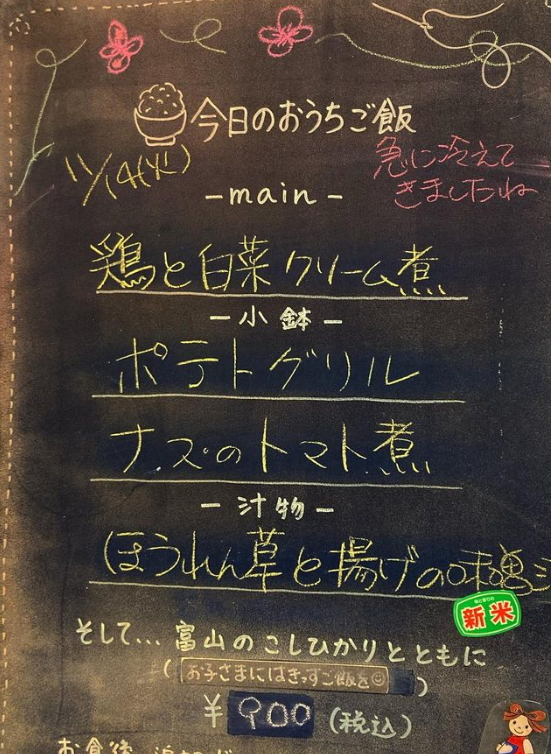 今日のおうちご飯
11/14(火)
急に冷えて
きましたね
-main-
鶏と白菜クリーム煮
-小鉢-
ポテトグリル
ナスのトマト煮
-汁物-
ほうれん草と揚げの味噌
新米
そして... 富山のこしひかりとともに
(お子さまにはきっずご飯を☺)
¥900(税込)
お食後